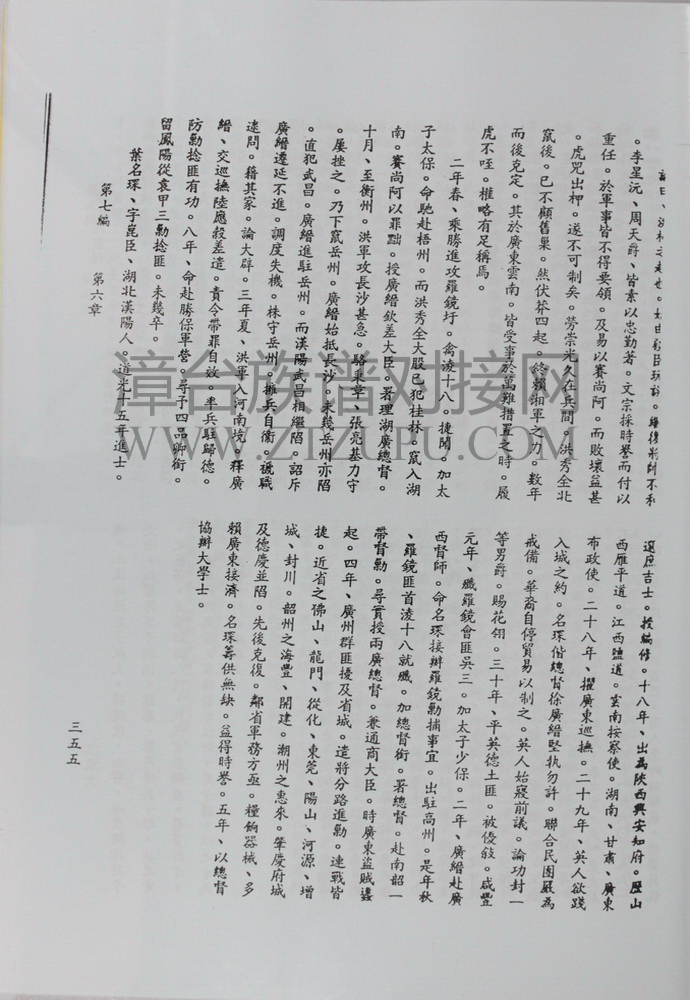 。李星沅、周天爵、皆素以忠勤著。文宗採時譽而付以
重任。於軍事皆不得要領。及易以賽尚阿。而敗壞益甚
。虎兕出柙。遂不可制矣。勞崇光久在兵間。洪秀全北
竄後。已不顧舊巢。然伏莽四起。終賴湘軍之力。數年
而後克定。其於廣東雲南。皆受事於萬難措置之時。履
虎不咥。權略有足稱焉。
二年春、乘勝進攻羅鏡圩。禽淩十八。捷聞。加太
子太保。命馳赴梧州。而洪秀全大股已犯桂林。竄入湖
南。賽尚阿以罪黜。授廣縉欽差大臣。署理湖廣總督。
十月、至衡州。洪軍攻長沙甚急。駱秉章、張亮基力守
。屢挫之。乃下竄岳州。廣縉始抵長沙。未幾岳州亦陷
。直犯武昌。廣縉進駐岳州。而漢陽武昌相繼陷。詔斥
廣縉遷延不進。調度失機。株守岳州。擁兵自衛。褫職
逮問。籍其家。論大辟。三年夏、洪軍入河南境。釋廣
縉、交巡撫陸應穀差遣。責令帶罪自效。率兵駐歸德。
防勦捻匪有功。八年、命赴勝保軍營。尋予四品卿銜。
留鳳陽從袁甲三勦捻匪。未幾卒。
葉名琛、字崑臣、湖北漢陽人。道光十五年進士。
選庶吉士。授編修。十八年、出為陝西興安知府。歷山
西雁平道。江西鹽道。雲南按察使。湖南、甘肅、廣東
布政使。二十八年、擢廣東巡撫。二十九年、英人欲踐
入城之約。名琛偕總督徐廣縉堅執勿許。聯合民團嚴為
戒備。華裔自停貿易以制之。英人始寢前議。論功封一
等男爵。賜花翎。三十年、平英德土匪。被優敍。咸豐
元年、殲羅鏡會匪吳三。加太子少保。二年、廣縉赴廣
西督師。命名琛接辦羅鏡勦捕事宜。出駐高州。是年秋
、羅鏡匪首淩十八就殲。加總督銜。署總督。赴南韶一
帶督勦。尋實授兩廣總督。兼通商大臣。時廣東盜賊蠭
起。四年、廣州群匪擾及省城。遣將分路進勦。連戰皆
捷。近省之佛山、龍門、從化、東莞、陽山、河源、增
城、封川。韶州之海豐、開建。潮州之惠來。肇慶府城
及德慶並陷。先後克復。鄰省軍務方亟。糧餉器械、多
賴廣東接濟。名琛籌供無缺。益得時譽。五年、以總督
協辦大學士。
第七編　第六章
三五五
漳台族谱对接网
WWW.ZTZUPU.COM